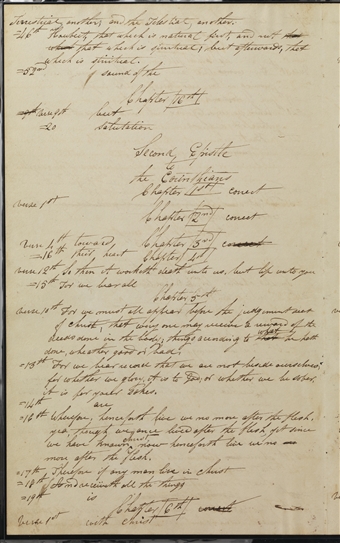 Terrestrial, another; and the Telestial, another.
=46th Howbeit, that which is natural first, and not
that which is spiritual; but afterwards, that
which is spiritual.
=52nd sound of the
Chapter 16th
verse 9th but
=20 salutation
Second Epistle
to
the Corinthians
Chapter 1st correct
verse 1st
Chapter 2nd correct
verse 4th toward Chapter 3rd correct
=16th their heart Chapter 4th
verse 12th So then it worketh death unto us, but life unto you
=15th For we bear all
Chapter 5th
verse 10th For we must all appear before the judgement seat
of Christ, that every one may receive a reward of the
deeds done in the body; things according to what he hath
done, whether good or bad.
=13th For we bear record that we are not beside ourselves;
for whether we glory, it is to God, or whether we be sober,
it is for your sakes.
=14th are
=16th Wherefore, henceforth live we no more after the flesh;
yea, though we once lived after the flesh yet since
we have known Christ, now henceforth live we no
more after the flesh.
=17th Therefore if any man live in Christ
=18th And receiveth all the things
=19th is
Chapter 6th correct
verse 1st with Christ